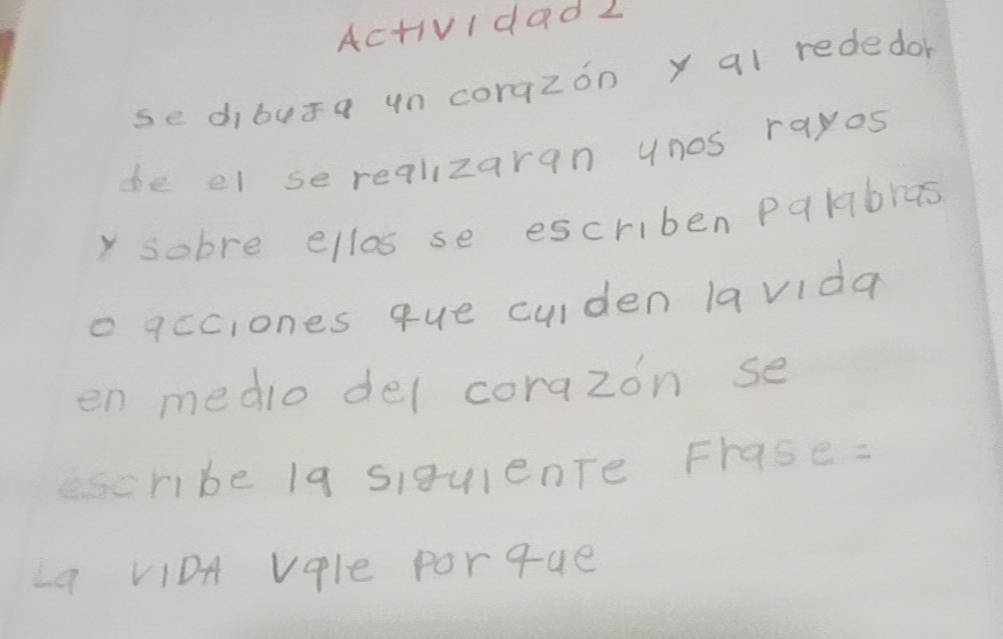 Actividad 2
se dibuja un corazón y al rededor
de el se realizaran unos rayos
y sobre ellos se escriben palabras
o acciones que cuiden la vida
en medio del corazón se
escribe la siguiente Frase:
La VIDA Vale porque